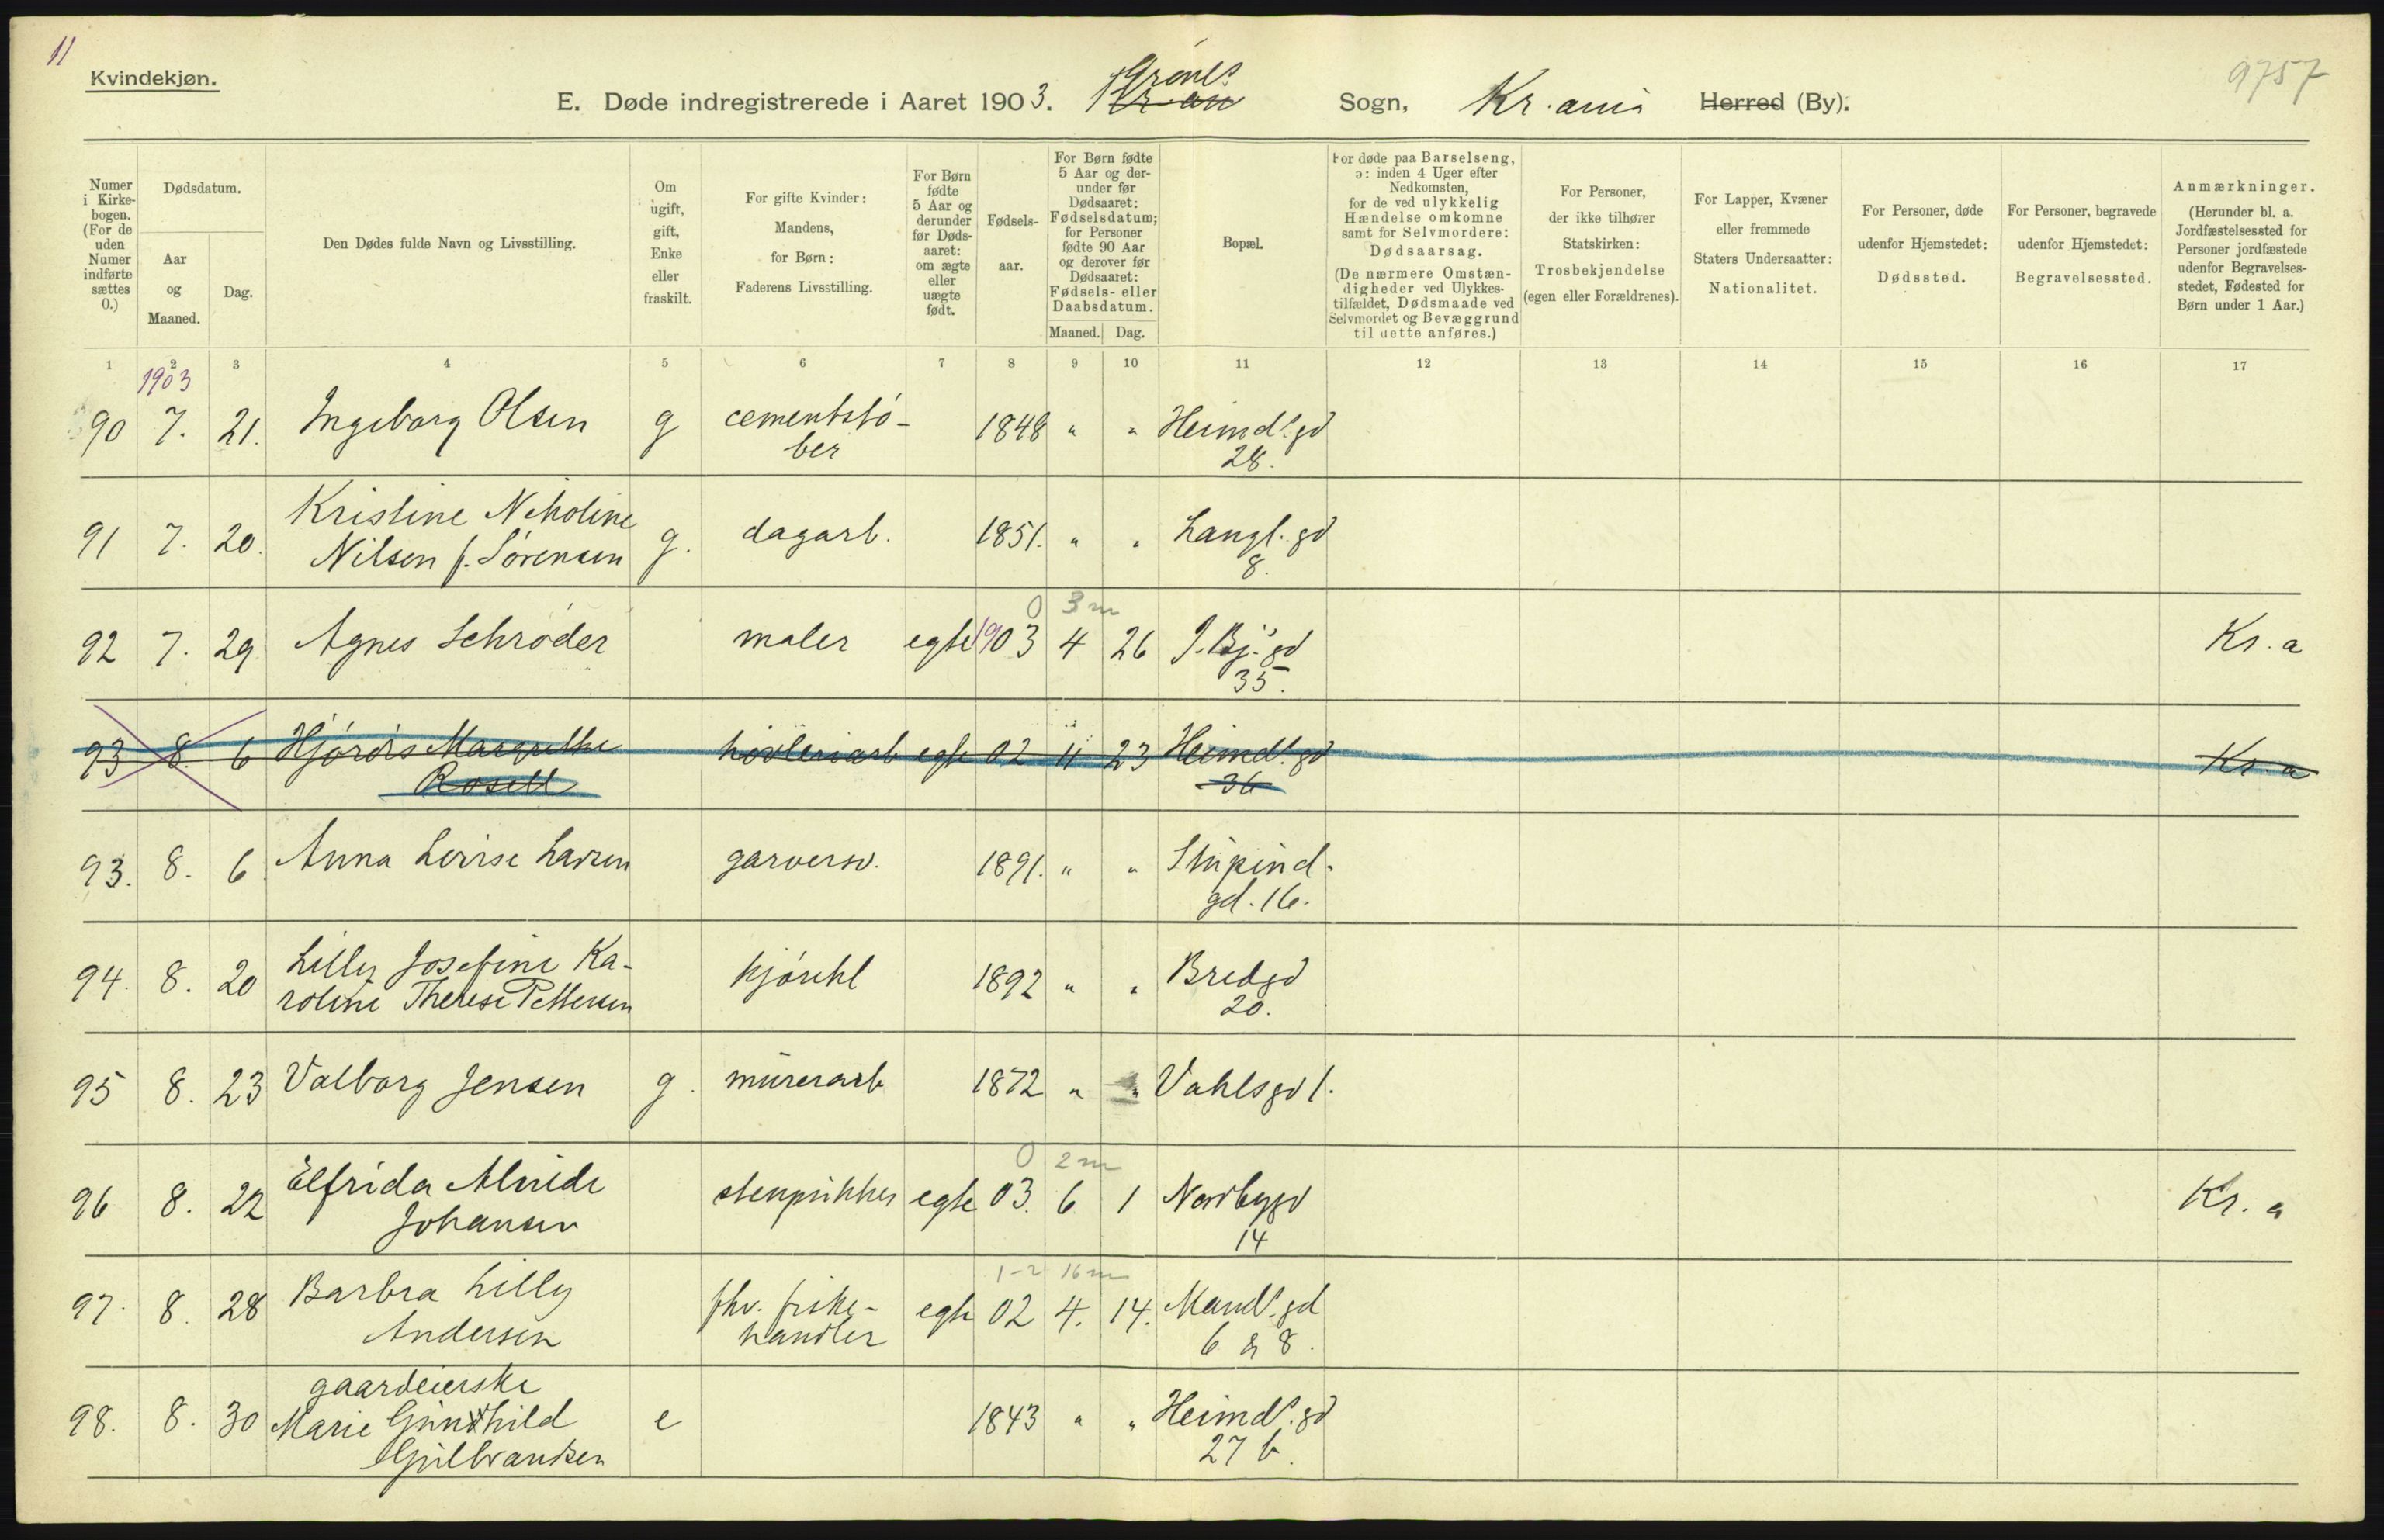 11
Kvindekjøn.
9757
E. Døde indregistrerede i Aaret 1903. Grønls Sogn, Kr.ania Herred (By).
Numer i Kirkebogen. (For de uden Numer indførte sættes 0.)
Dødsdatum.
Aar og Maaned.
Dag.
Den Dødes fulde Navn og Livsstilling.
Om ugift, gift, Enke eller fraskilt.
For gifte Kvinder: Mandens, for Børn: Faderens Livsstilling.
For Børn fødte 5 Aar og derunder før Dødsaaret: om ægte eller uægte født.
Fødselsaar.
For Børn fødte 5 Aar og derunder før Dødsaaret: Fødselsdatum; for Personer fødte 90 Aar og derover før Dødsaaret: Fødsels- eller Daabsdatum.
Maaned. Dag.
Bopæl.
For døde paa Barselseng, ɔ: inden 4 Uger efter Nedkomsten, for de ved ulykkelig Hændelse omkomne samt for Selvmordere: Dødsaarsag. (De nærmere Omstændigheder ved Ulykkestilfældet, Dødsmaade ved Selvmordet og Bevæggrund til dette anføres.)
For Personer, der ikke tilhører Statskirken: Trosbekjendelse (egen eller Forældrenes).
For Lapper, Kvæner eller fremmede Staters Undersaatter: Nationalitet.
For Personer, døde udenfor Hjemstedet: Dødssted.
For Personer, begravede udenfor Hjemstedet: Begravelsessted.
Anmærkninger. (Herunder bl. a. Jordfæstelsessted for Personer jordfæstede udenfor Begravelsesstedet, Fødested for Børn under 1 Aar.)
1 2 3 4 5 6 7 8 9 10 11 12 13 14 15 16 17
1903
90 7. 21. Ingeborg Olsen g cementstø- 1848 " " Heimdˢ.gd
ber 28.
Kristine Nikoline
91 7. 20. Nilsen f. Sørensen g. dagarb. 1851. " " Langl. gd
8.
0 3 m
92 7. 29 Agnes Schrøder maler egte 1903 4 26 J. Bj. gd Kr. a
35.
93 8. 6 Hjørdis Margrethe høvleriarb egte 02 11 23 Heimdˢ.gd Kr. a
Rosell 36
93. 8. 6. Anna Lovise Larsen garversv. 1891. " " Stupind-
gd. 16.
94. 8. 20 Lilly Josefine Ka- kjørekl 1892 " " Bredgd
roline Therese Pettersen 20.
95 8. 23 Valborg Jensen g. murerarb 1872 " " Vahlsgd 1.
0 2 m
96 8. 22 Elfrida Alvilde stenpikker egte 03. 6 1 Nordbygd Kr. a
Johansen 14
1-2 16 m
97. 8. 28 Barbra Lilly fhv. fiske- egte 02 4. 14. Mandˢ.gd
Andersen handler 6 & 8.
gaardeierske
98. 8. 30 Marie Gunhild e 1843 " " Heimdˢ.gd
Gulbrandsen 27 b.